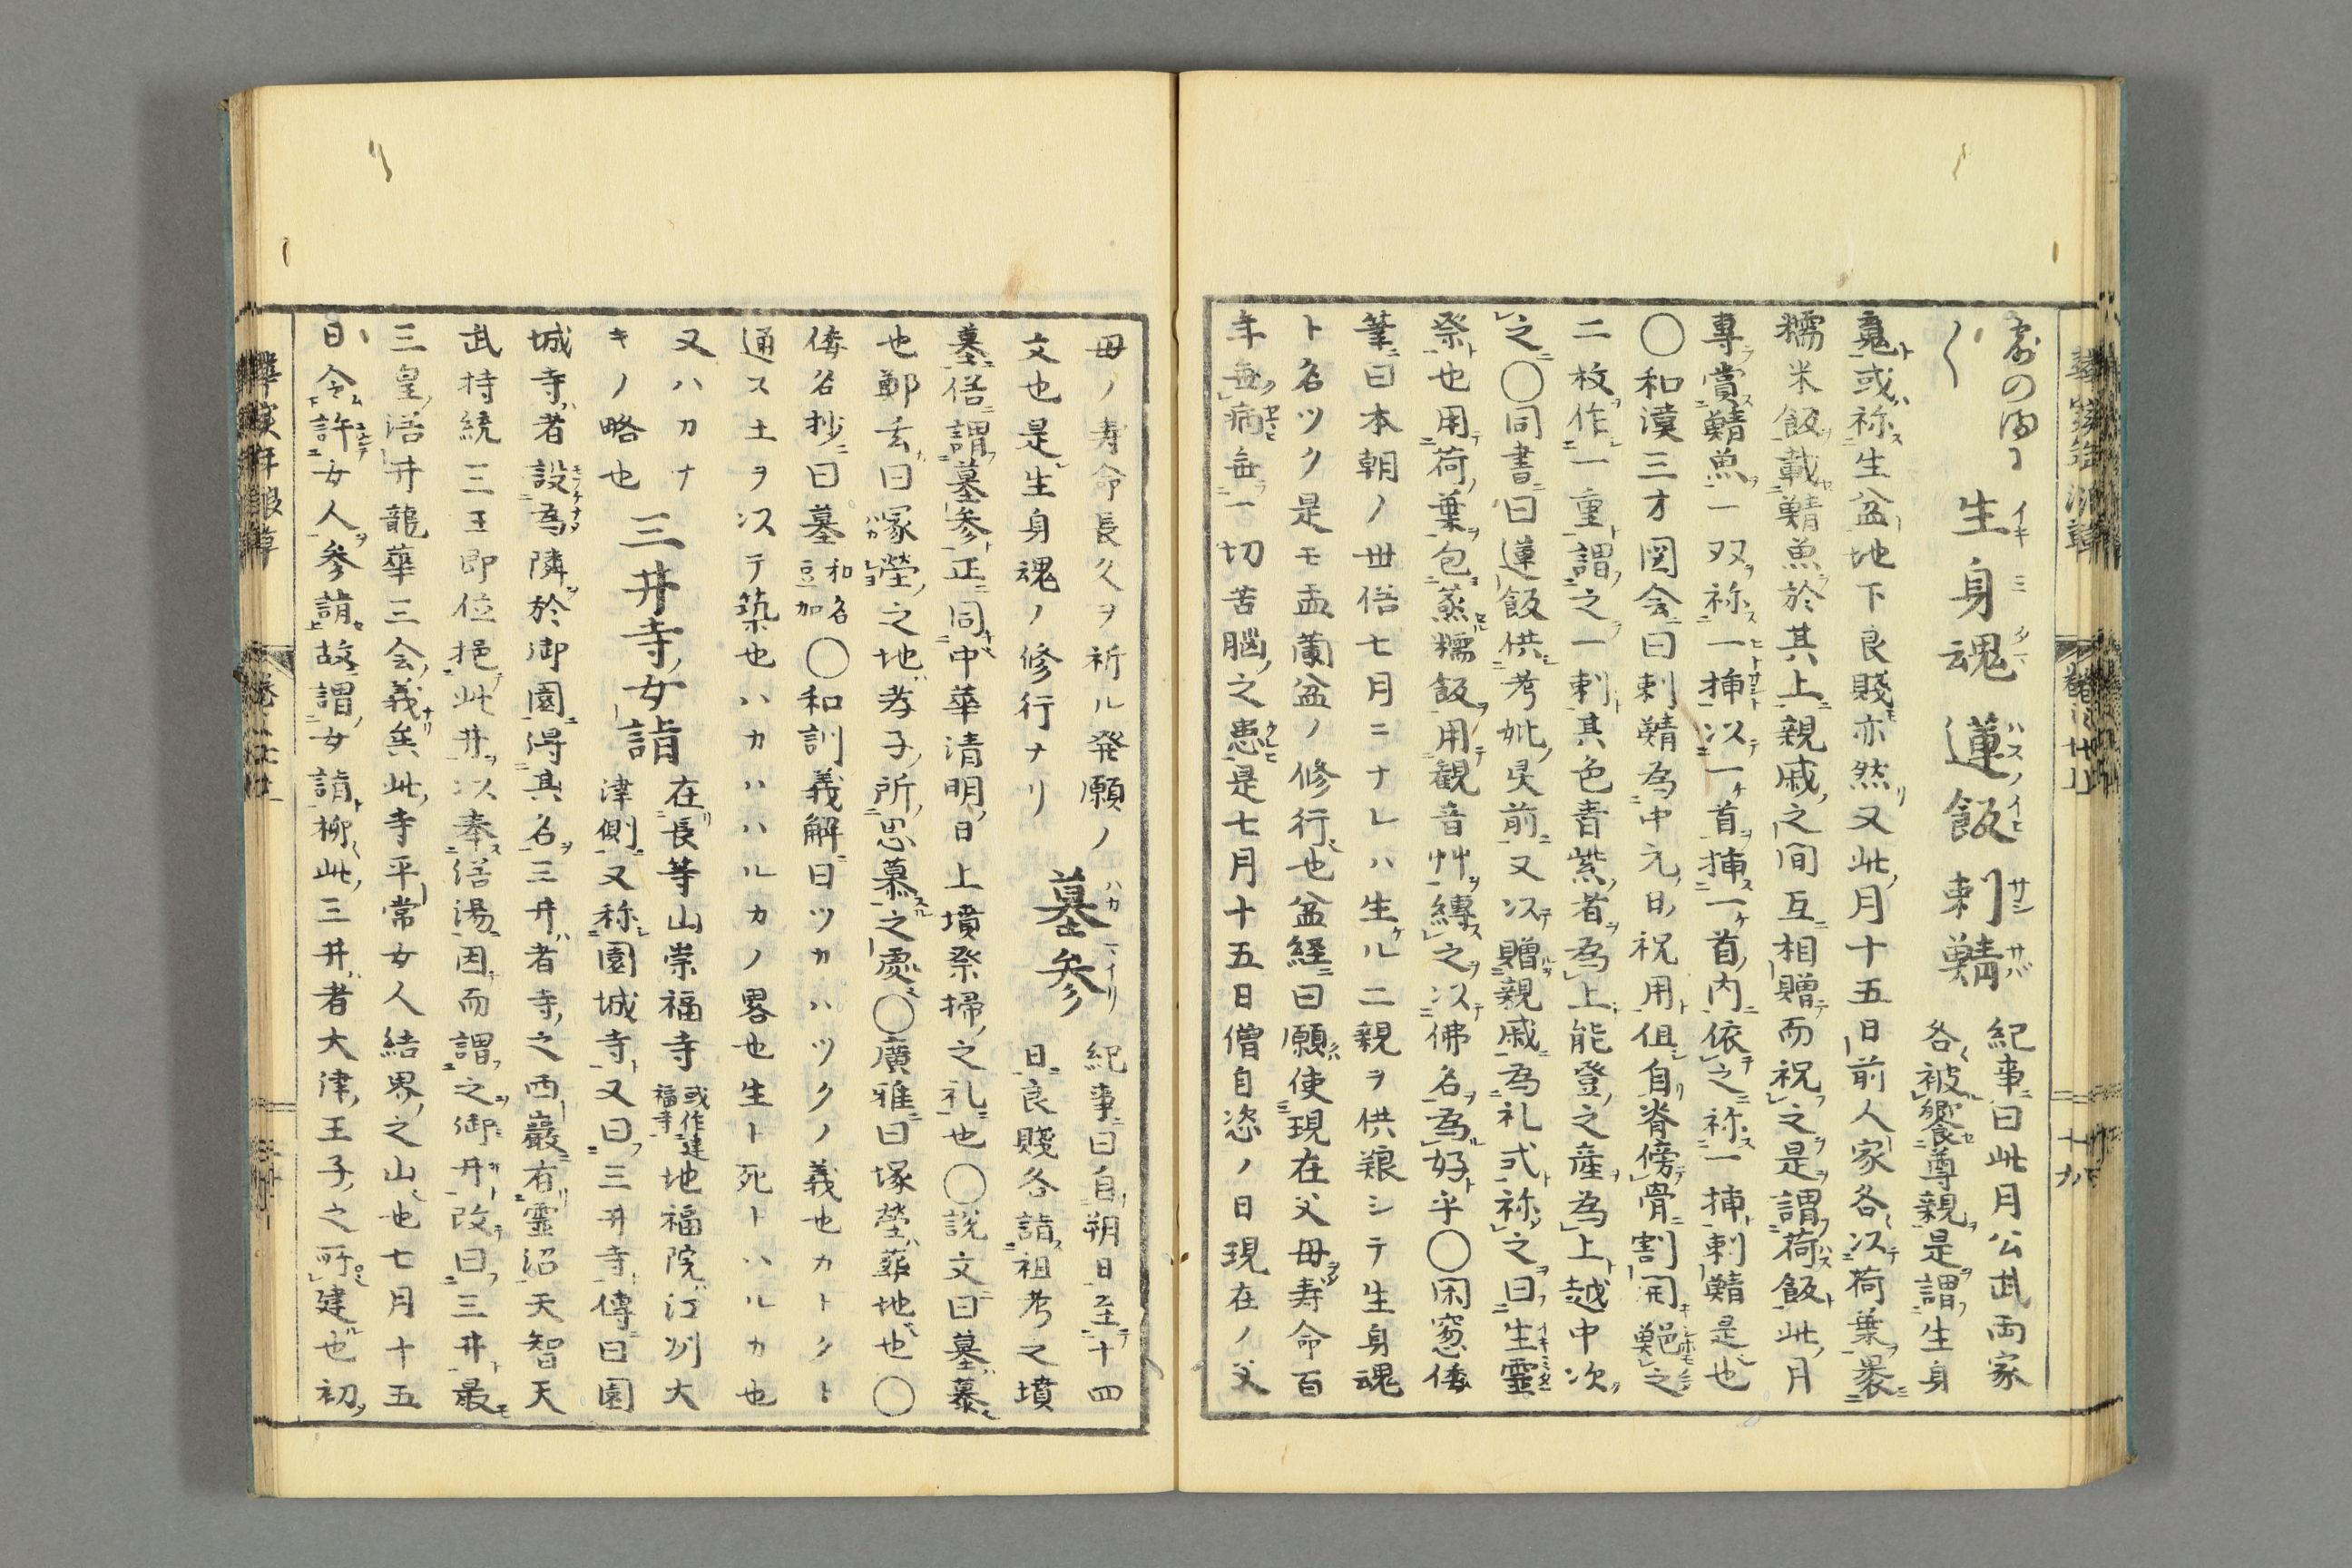 生身魂 蓮飯 刺鯖 紀事曰此月公武両家
各被饗尊親是謂生身
䰟或称生盆地下良賤亦然又此月十五日前人家各以荷葉裹
糯米飯載鯖魚於其上親戚之間互相贈而祝之是謂荷飯此月
専賞鯖魚一双称一挿以一首挿一首内依之称一挿刺鯖是也
〇和漢三才図会曰刺鯖為中元日祝用但自脊傍骨割開之
二枚作一重謂之一刺其色青紫者為上能登之産為上越中次
之〇同書曰蓮飯供考妣灵前又以贈親戚為礼式称之曰生霊
祭也用荷葉包蒸糯飯用観音艸縛之以佛名為好乎〇閑窓倭
筆曰本朝ノ世俗七月ニナレハ生ル二親ヲ供粮シテ生身魂
ト名ツク是モ盂蘭盆ノ修行也盆経曰願使現在父母寿命百
年無病無一切苦脳之患是七月十五日僧自恣ノ日現在ノ父
母ノ寿命長久ヲ祈ル発願ノ 墓参 紀事曰自朔日至十四
文也是生身魂ノ修行ナリ 日良賤各詣祖考之墳
墓俗謂墓参正同中華清明日上墳祭掃之礼也〇説文曰墓慕
也鄭玄曰冢塋之地孝子所思慕之處〇廣雅曰塚塋葬地也〇
倭名抄曰墓和名豆加〇和訓義解曰ツカハツクノ義也カトクト
通ス土ヲ以テ築也ハカハハルカノ畧也生ト死トハルカ也
又ハカナキノ略也 三井寺女詣 在長等山崇福寺或作建福寺地福院江州大
津側又称園城寺又曰三井寺傳曰園
城寺者設為隣於御園得其名三井者寺之西巖有霊沼天智天
武持統三王即位挹此井以奉浴湯因而謂之御井改曰三井最
三皇浴井龍華三会義矣此寺平常女人結界之山也七月十五
日令許女人参詣故謂女詣抑此三井者大津王子之所建也初